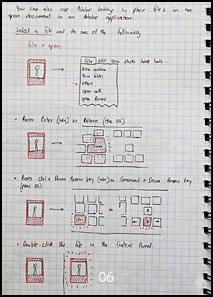 You can also use Adobe bridge to place files in an
open document in an Adobe application
Select a file and do one of the following
file > open
File Edit View Stacks Label Tools
New window
New folder
open
open with
open Recent
• Press Enter (win) or Return (Mac OS)
• Press ctrl + Down Arrow key (win) or Command + Down Arrow key
(Mac OS)
• Double-click the file in the Content Panel
06